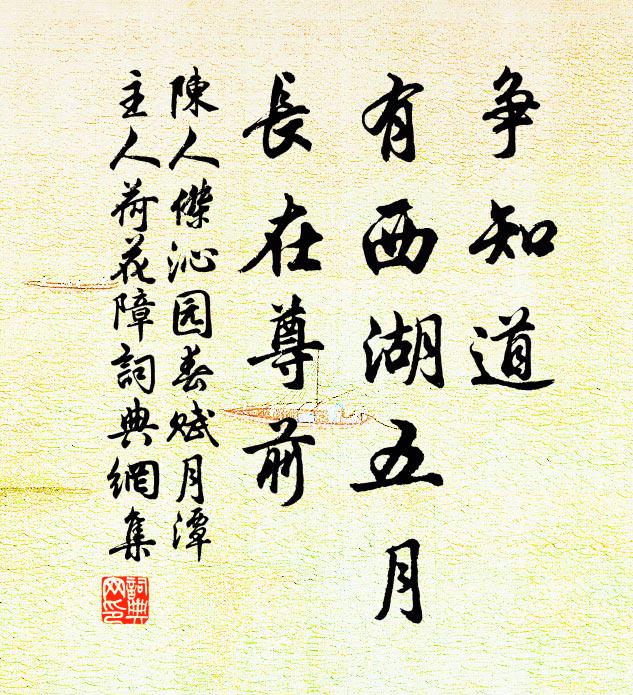 争知道
有西湖五月
長在尊前
陳人傑沁园春赋月潭
主人荷花障詞典網集
詞典网印